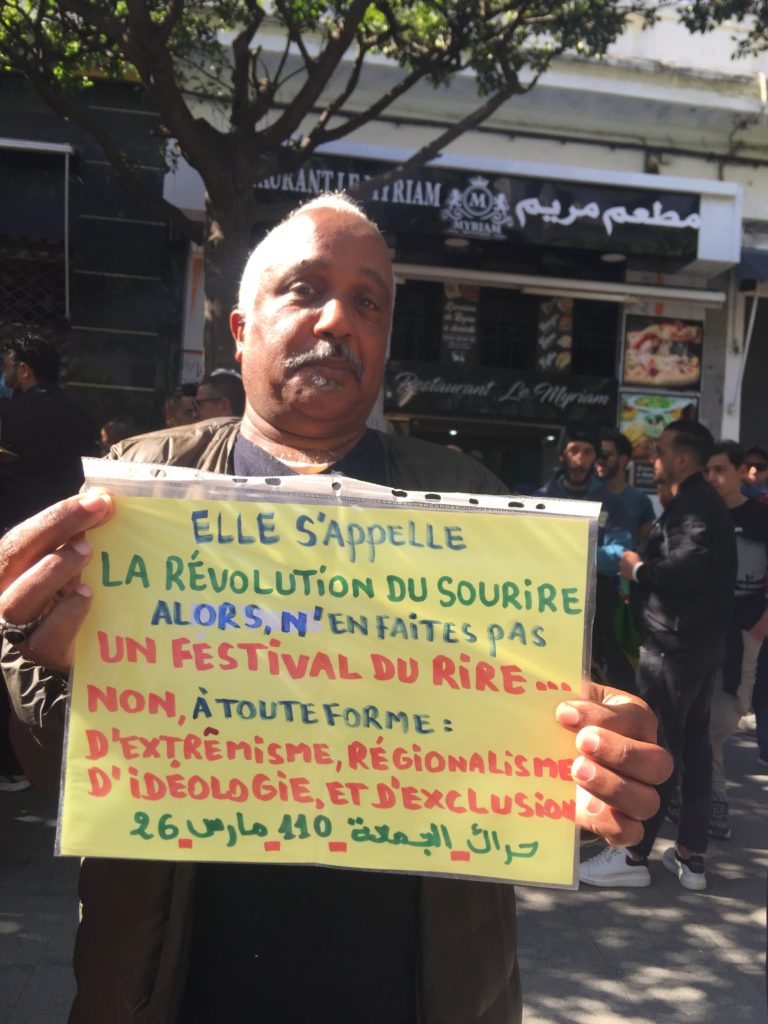 RANT LE MYRIAM
M
MYRIAM
مطعم مريم
Restaurant Le Myriam
ELLE S'APPELLE
LA RÉVOLUTION DU SOURIRE
ALORS, N'EN FAITES PAS
UN FESTIVAL DU RIRE...
NON, À TOUTE FORME :
D'EXTRÊMISME, RÉGIONALISME
D'IDÉOLOGIE, ET D'EXCLUSION
حراك الجمعة 110 مارس 26